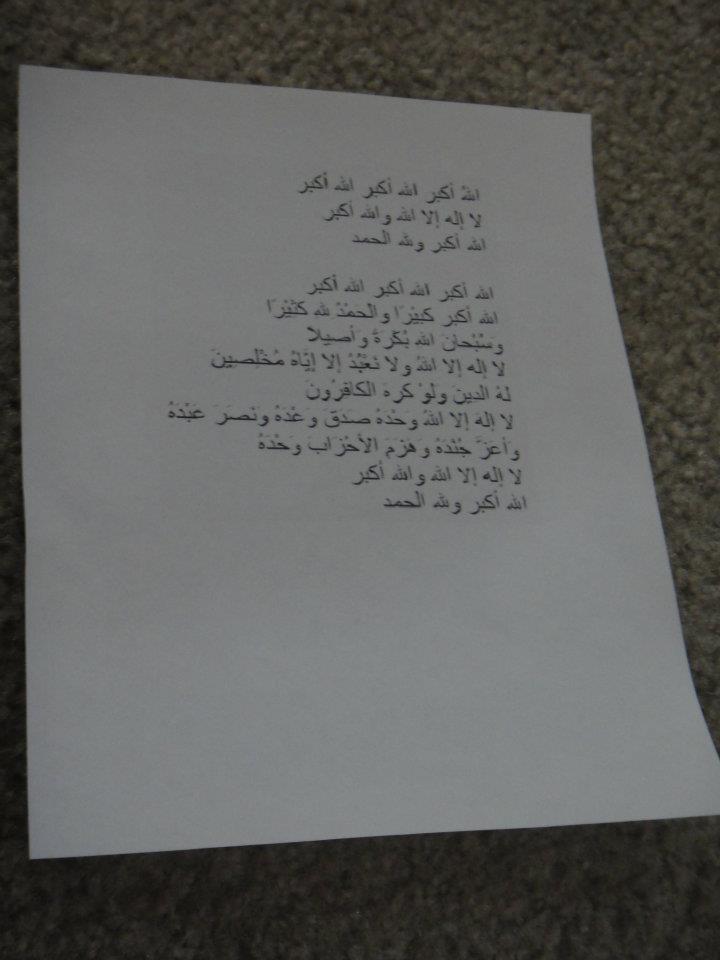 اللهُ أكبر الله أكبر الله أكبر
لا إله إلا الله والله أكبر
الله أكبر ولله الحمد
الله أكبر الله أكبر الله أكبر
الله أكبر كَبِيْرًا والْحَمْدُ لله كَثَيْرًا
وسُبْحانَ الله بُكْرَةً وَأصيلا
لا إله إلا اللهُ ولا نَعْبُدُ إلا إيَّاهُ مُخْلِصِينَ
لهُ الدينَ ولَوْ كَرِهَ الكافِرُونَ
لا إلهَ إلا اللهُ وَحْدَهُ صدَقَ وَعْدَهُ ونَصَرَ عَبْدَهُ
وَأعَزَّ جُنْدَهُ وَهَزَمَ الأحْزَابَ وَحْدَهُ
لا إله إلا الله والله أكبر
الله أكبر ولله الْحمد